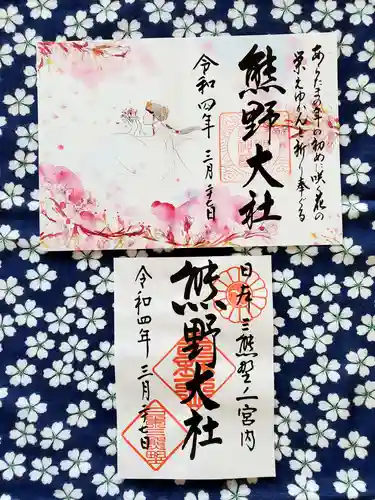 あらたまの年の初めに咲く花の
栄えゆくんと祈り奉ぐる
熊野大社
令和四年 三月二十七日
日本 三熊野ノ一宮内
熊野大社
令和四年 三月二十七日